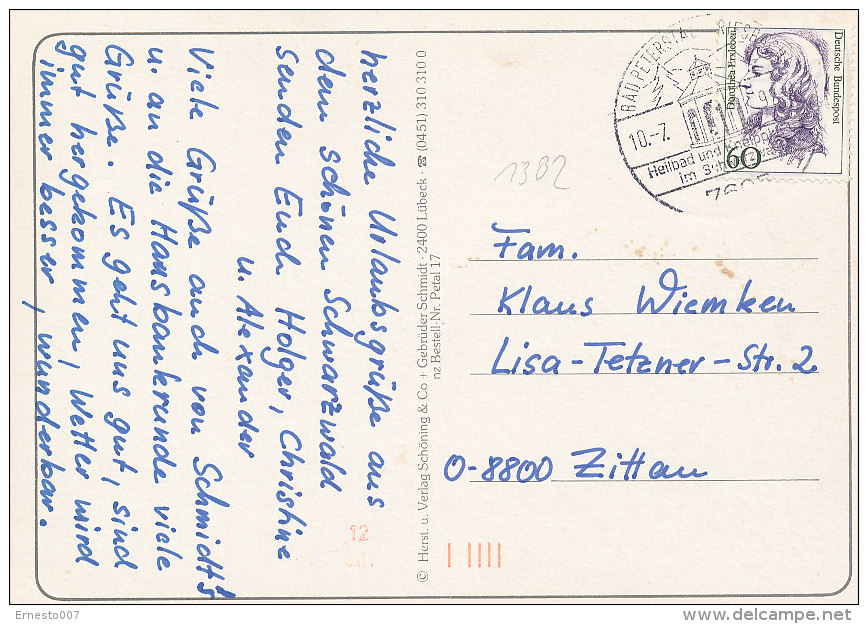 herzliche Urlaubsgrüße aus
dem schönen Schwarzwald
senden Euch Holger, Christine
u. Alexander
Viele Grüße auch von Schmidt's
u. an die Hausbankrunde viele
Grüße. Es geht uns gut, sind
gut hergekommen, Wetter wird
immer besser, wunderbar.
© Herst. u. Verlag Schöning & Co + Gebrüder Schmidt · 2400 Lübeck · ☎ (0451) 310 310 0
nz Bestell.-Nr. Petal 17
BAD PETERSTAL
10.-7.
Heilbad und
im
Dorothea Erxleben
Deutsche Bundespost
60
1382
Fam.
Klaus Wiemken
Lisa-Tetzner-Str. 2
O-8800 Zittau
12
Ernesto007
delcampe.net